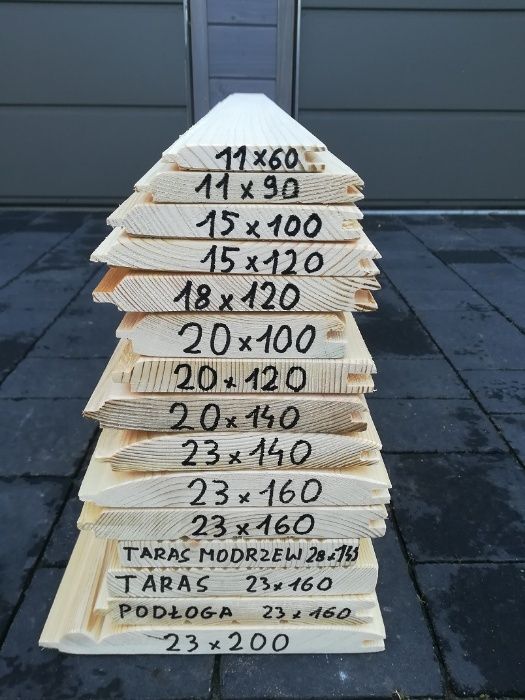 11x60
11x90
15x100
15x120
18x120
20x100
20x120
20x140
23x140
23x160
23x160
TARAS MODRZEW 28x145
TARAS 23x160
PODŁOGA 23x160
23x200